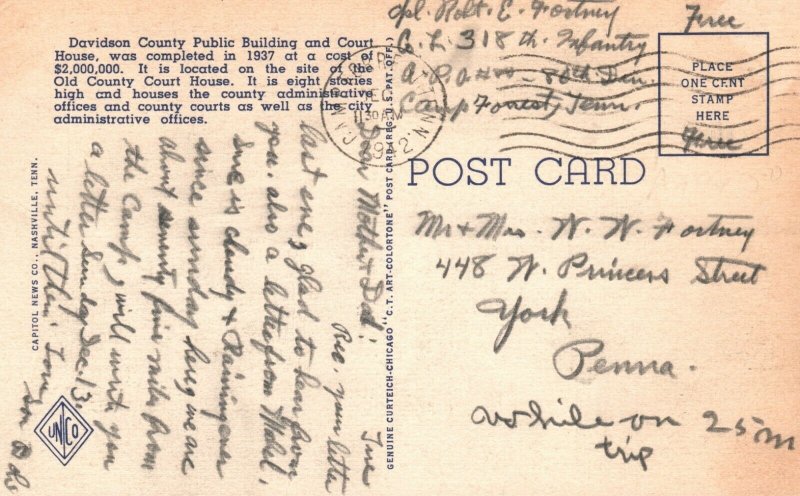 Davidson County Public Building and Court
House, was completed in 1937 at a cost of
$2,000,000. It is located on the site of the
Old County Court House. It is eight stories
high and houses the county administrative
offices and county courts as well as the city
administrative offices.
Cpl. Robt. E. Fortney
318th. Infantry
86th Div.
Camp Forest, Tenn.
Free
PLACE
ONE CENT
STAMP
HERE
Free
1130 AM
1942
POST CARD
Mr & Mrs. W. W. Fortney
448 W. Princess Street
York
Penna.
while on 25m
trip
Tues
Dear Mother & Dad:
Rec. your letter
last eve, glad to hear from
you, also a letter from Mabel.
is cloudy & Raining ever
since sunday here, we are
about seventy five miles from
the camp, will write you
a letter Sunday Dec. 13,
until then. Love
Son Bob
CAPITOL NEWS CO., NASHVILLE, TENN.
UN CO
GENUINE CURTEICH-CHICAGO "C.T. ART-COLORTONE" POST CARD (REG. U.S. PAT. OFF.)